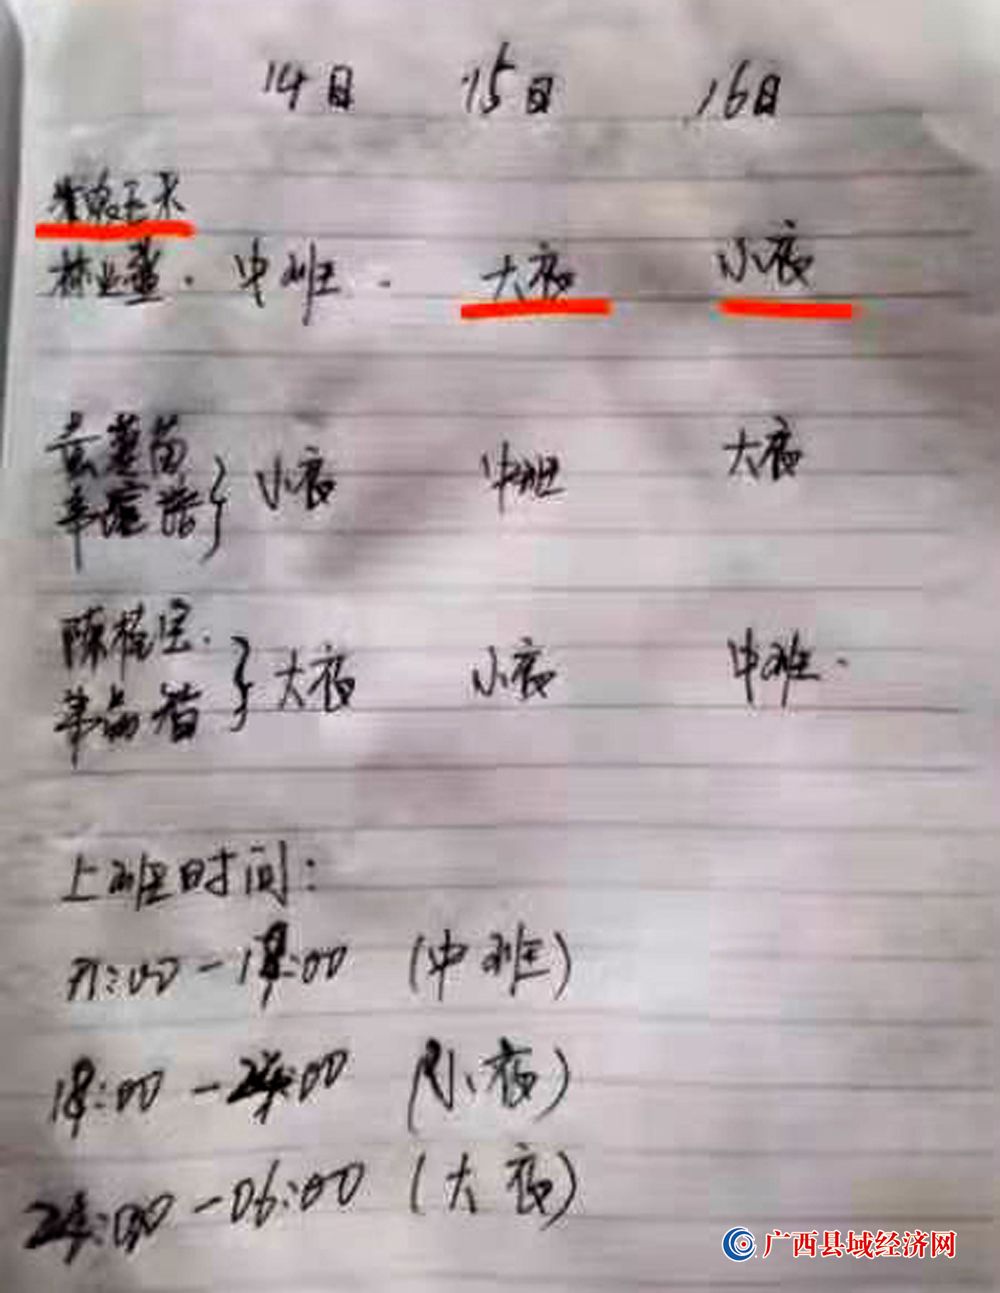 14日 15日 16日
林业 中班. 大夜 小夜
小夜 中班 大夜
陈桂
大夜 小夜 中班.
上班时间:
:00-18:00 (中班)
18:00-24:00 (小夜)
24:00-06:00 (大夜)
广西县域经济网